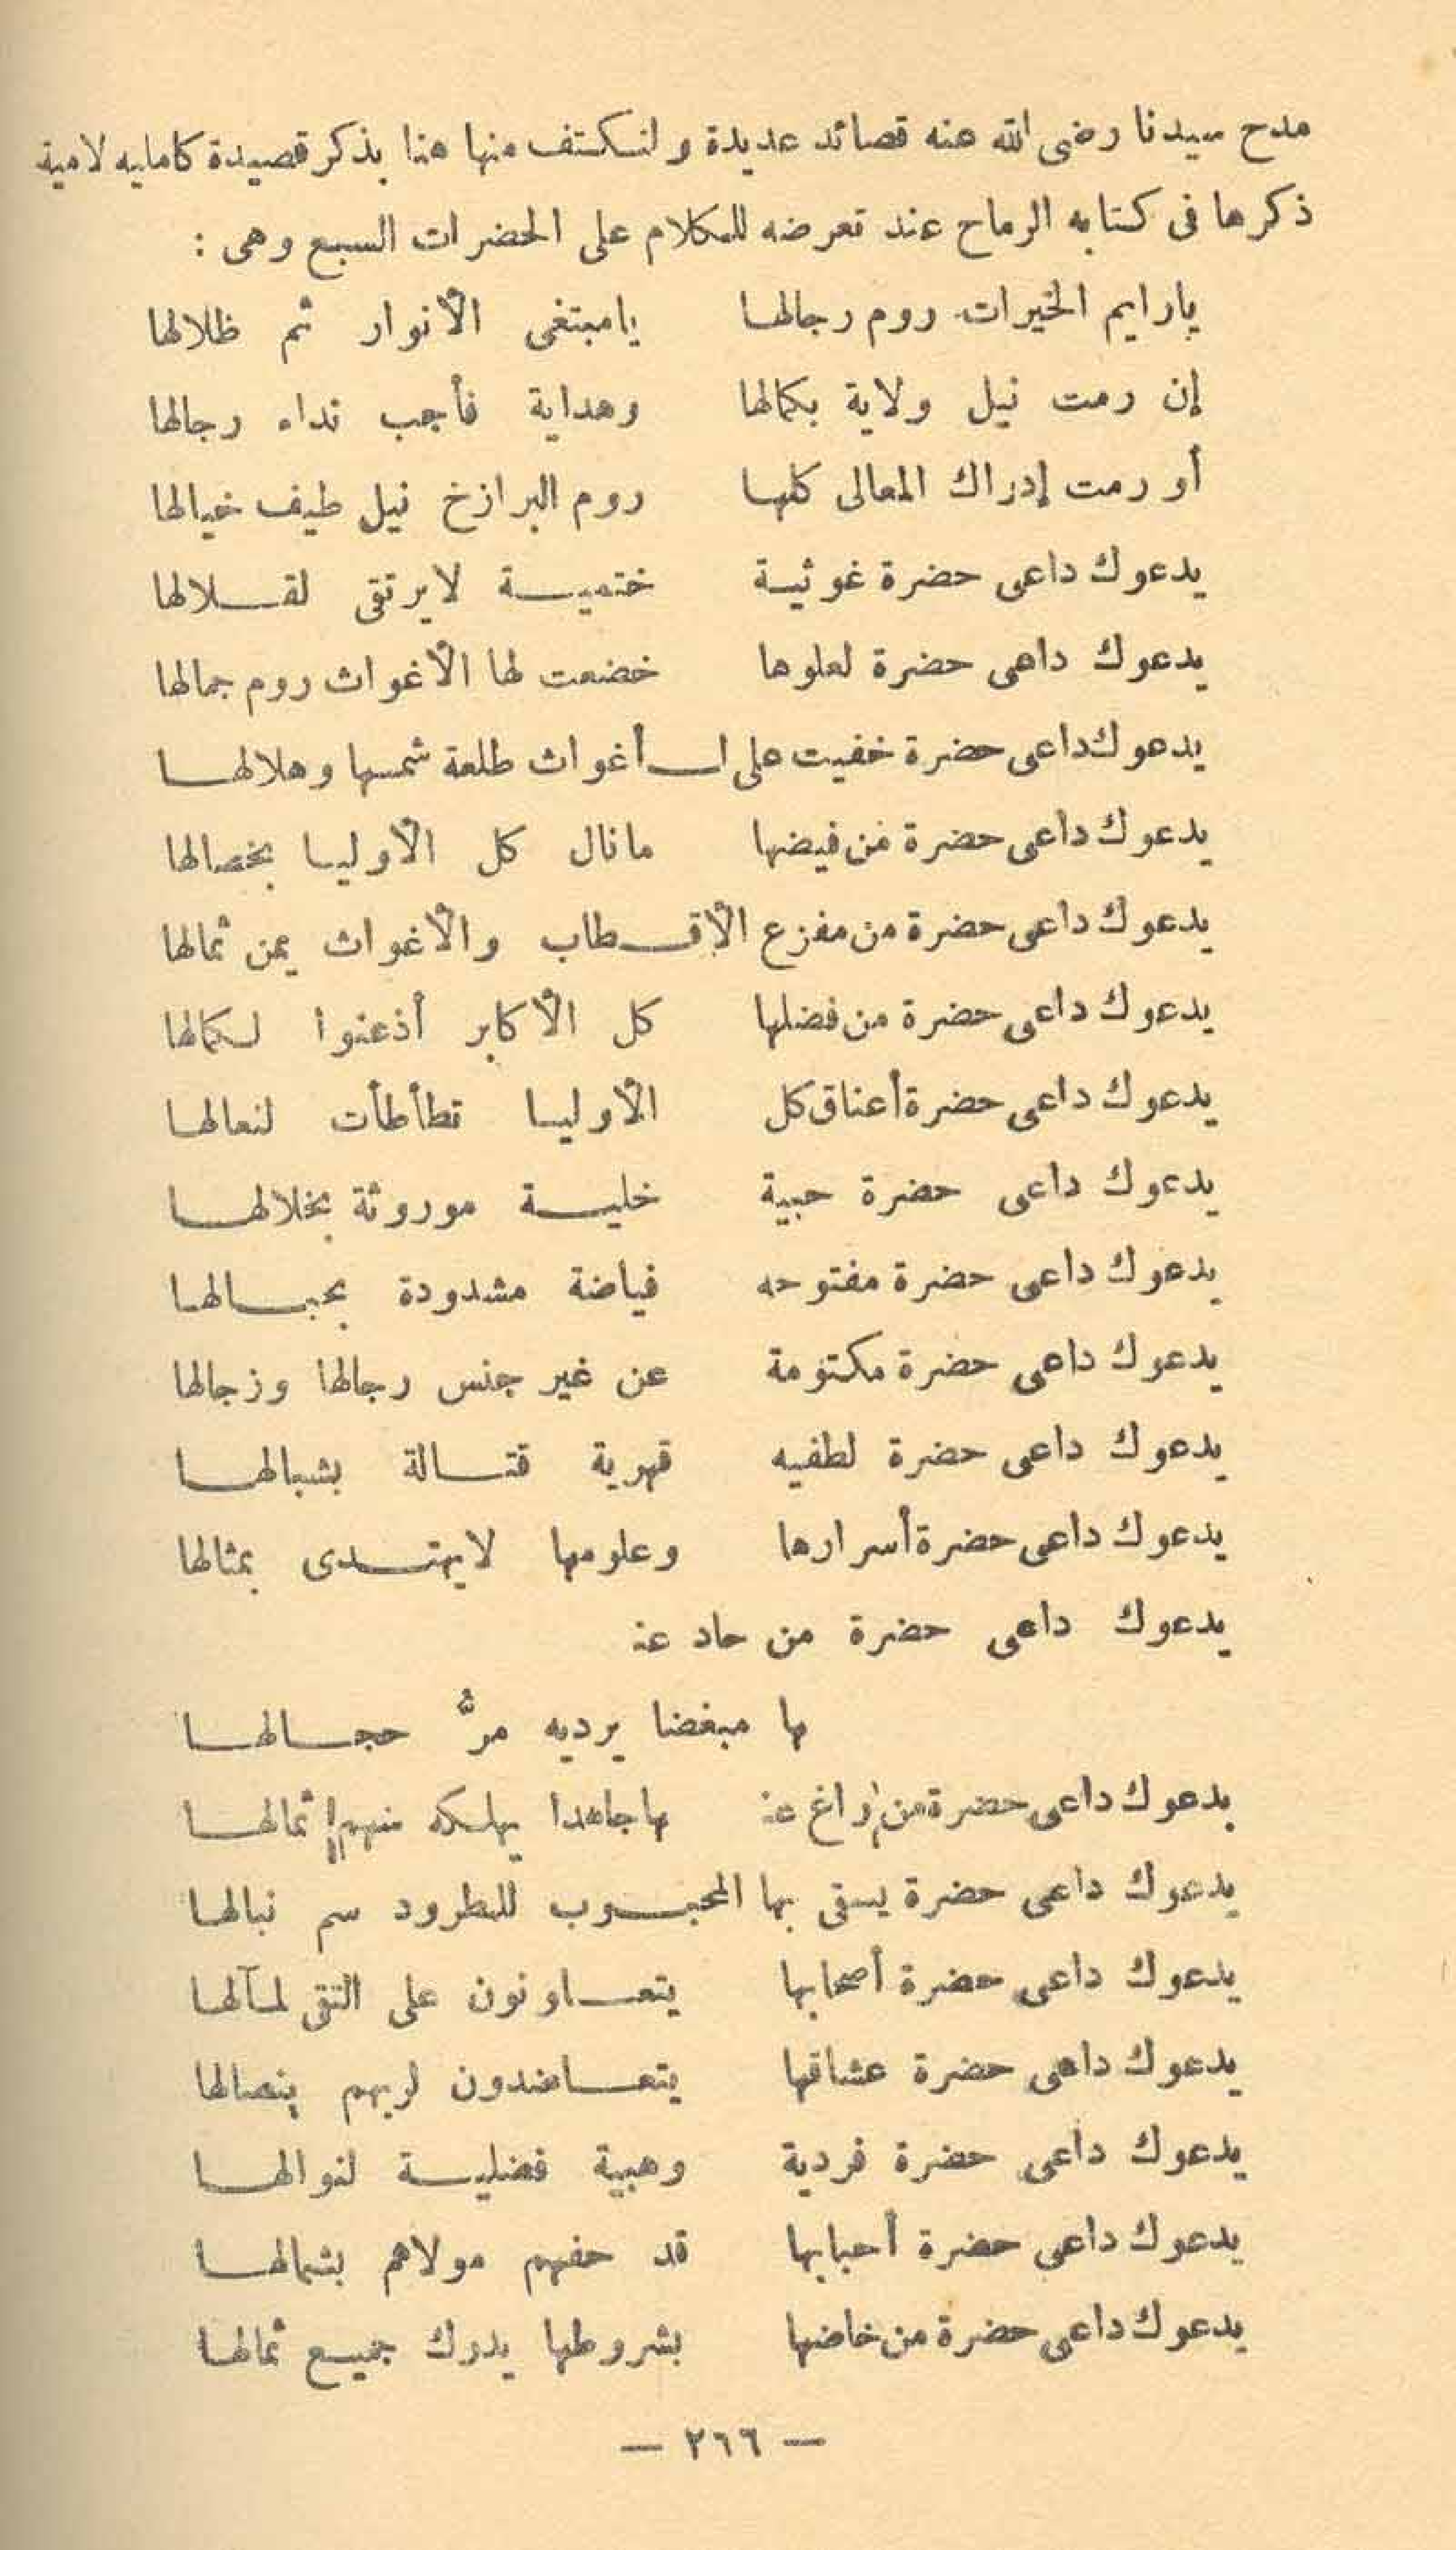 مدح سيدنا رضى الله عنه قصائد عديدة ولنكتف منها هنا بذكر قصيدة كاملية لامية
ذكرها فى كتابه الرماح عند تعرضه للكلام على الحضرات السبع وهى :
يارايم الخيرات روم رجالها يامبتغى الأنوار ثم ظلالها
إن رمت نيل ولاية بكمالها وهداية فأجب نداء رجالها
أو رمت إدراك المعالى كلها روم البرازخ نيل طيف خيالها
يدعوك داعى حضرة غوثية ختمية لايرتقى لقلالها
يدعوك داعى حضرة لعلوها خضعت لها الأغواث روم جمالها
يدعوك داعى حضرة خفيت على ا أغواث طلعة شمسها وهلالها
يدعوك داعى حضرة فمن فيضها مانال كل الأوليا بخصالها
يدعوك داعى حضرة من مفزع الأقطاب والأغواث يمن ثمالها
يدعوك داعى حضرة من فضلها كل الأكابر أذعنوا لكمالها
يدعوك داعى حضرة أعناق كل الأوليا تطأطأت لنعالها
يدعوك داعى حضرة حبية خلية موروثة بخلالها
يدعوك داعى حضرة مفتوحه فياضة مشدودة بحبالها
يدعوك داعى حضرة مكتومة عن غير جنس رجالها وزجالها
يدعوك داعى حضرة لطفيه قهرية قتالة بشبالها
يدعوك داعى حضرة أسرارها وعلومها لايهتدى بمثالها
يدعوك داعى حضرة من حاد عنـ
ـها مبغضا يرديه مرُّ حجالها
يدعوك داعى حضرة من راغ عنـ ـها جاهدا يهلكه ثمالها
يدعوك داعى حضرة يسقى بها المحبوب للمطرود سم نبالها
يدعوك داعى حضرة أصحابها يتعاونون على التقى لمآلها
يدعوك داعى حضرة عشاقها يتعاضدون لربهم بنصالها
يدعوك داعى حضرة فردية وهبية فضلية لنوالها
يدعوك داعى حضرة أحبابها قد حفهم مولاهم بشمالها
يدعوك داعى حضرة من خاضها بشروطها يدرك جميع ثمالها
— ٢٦٦ —